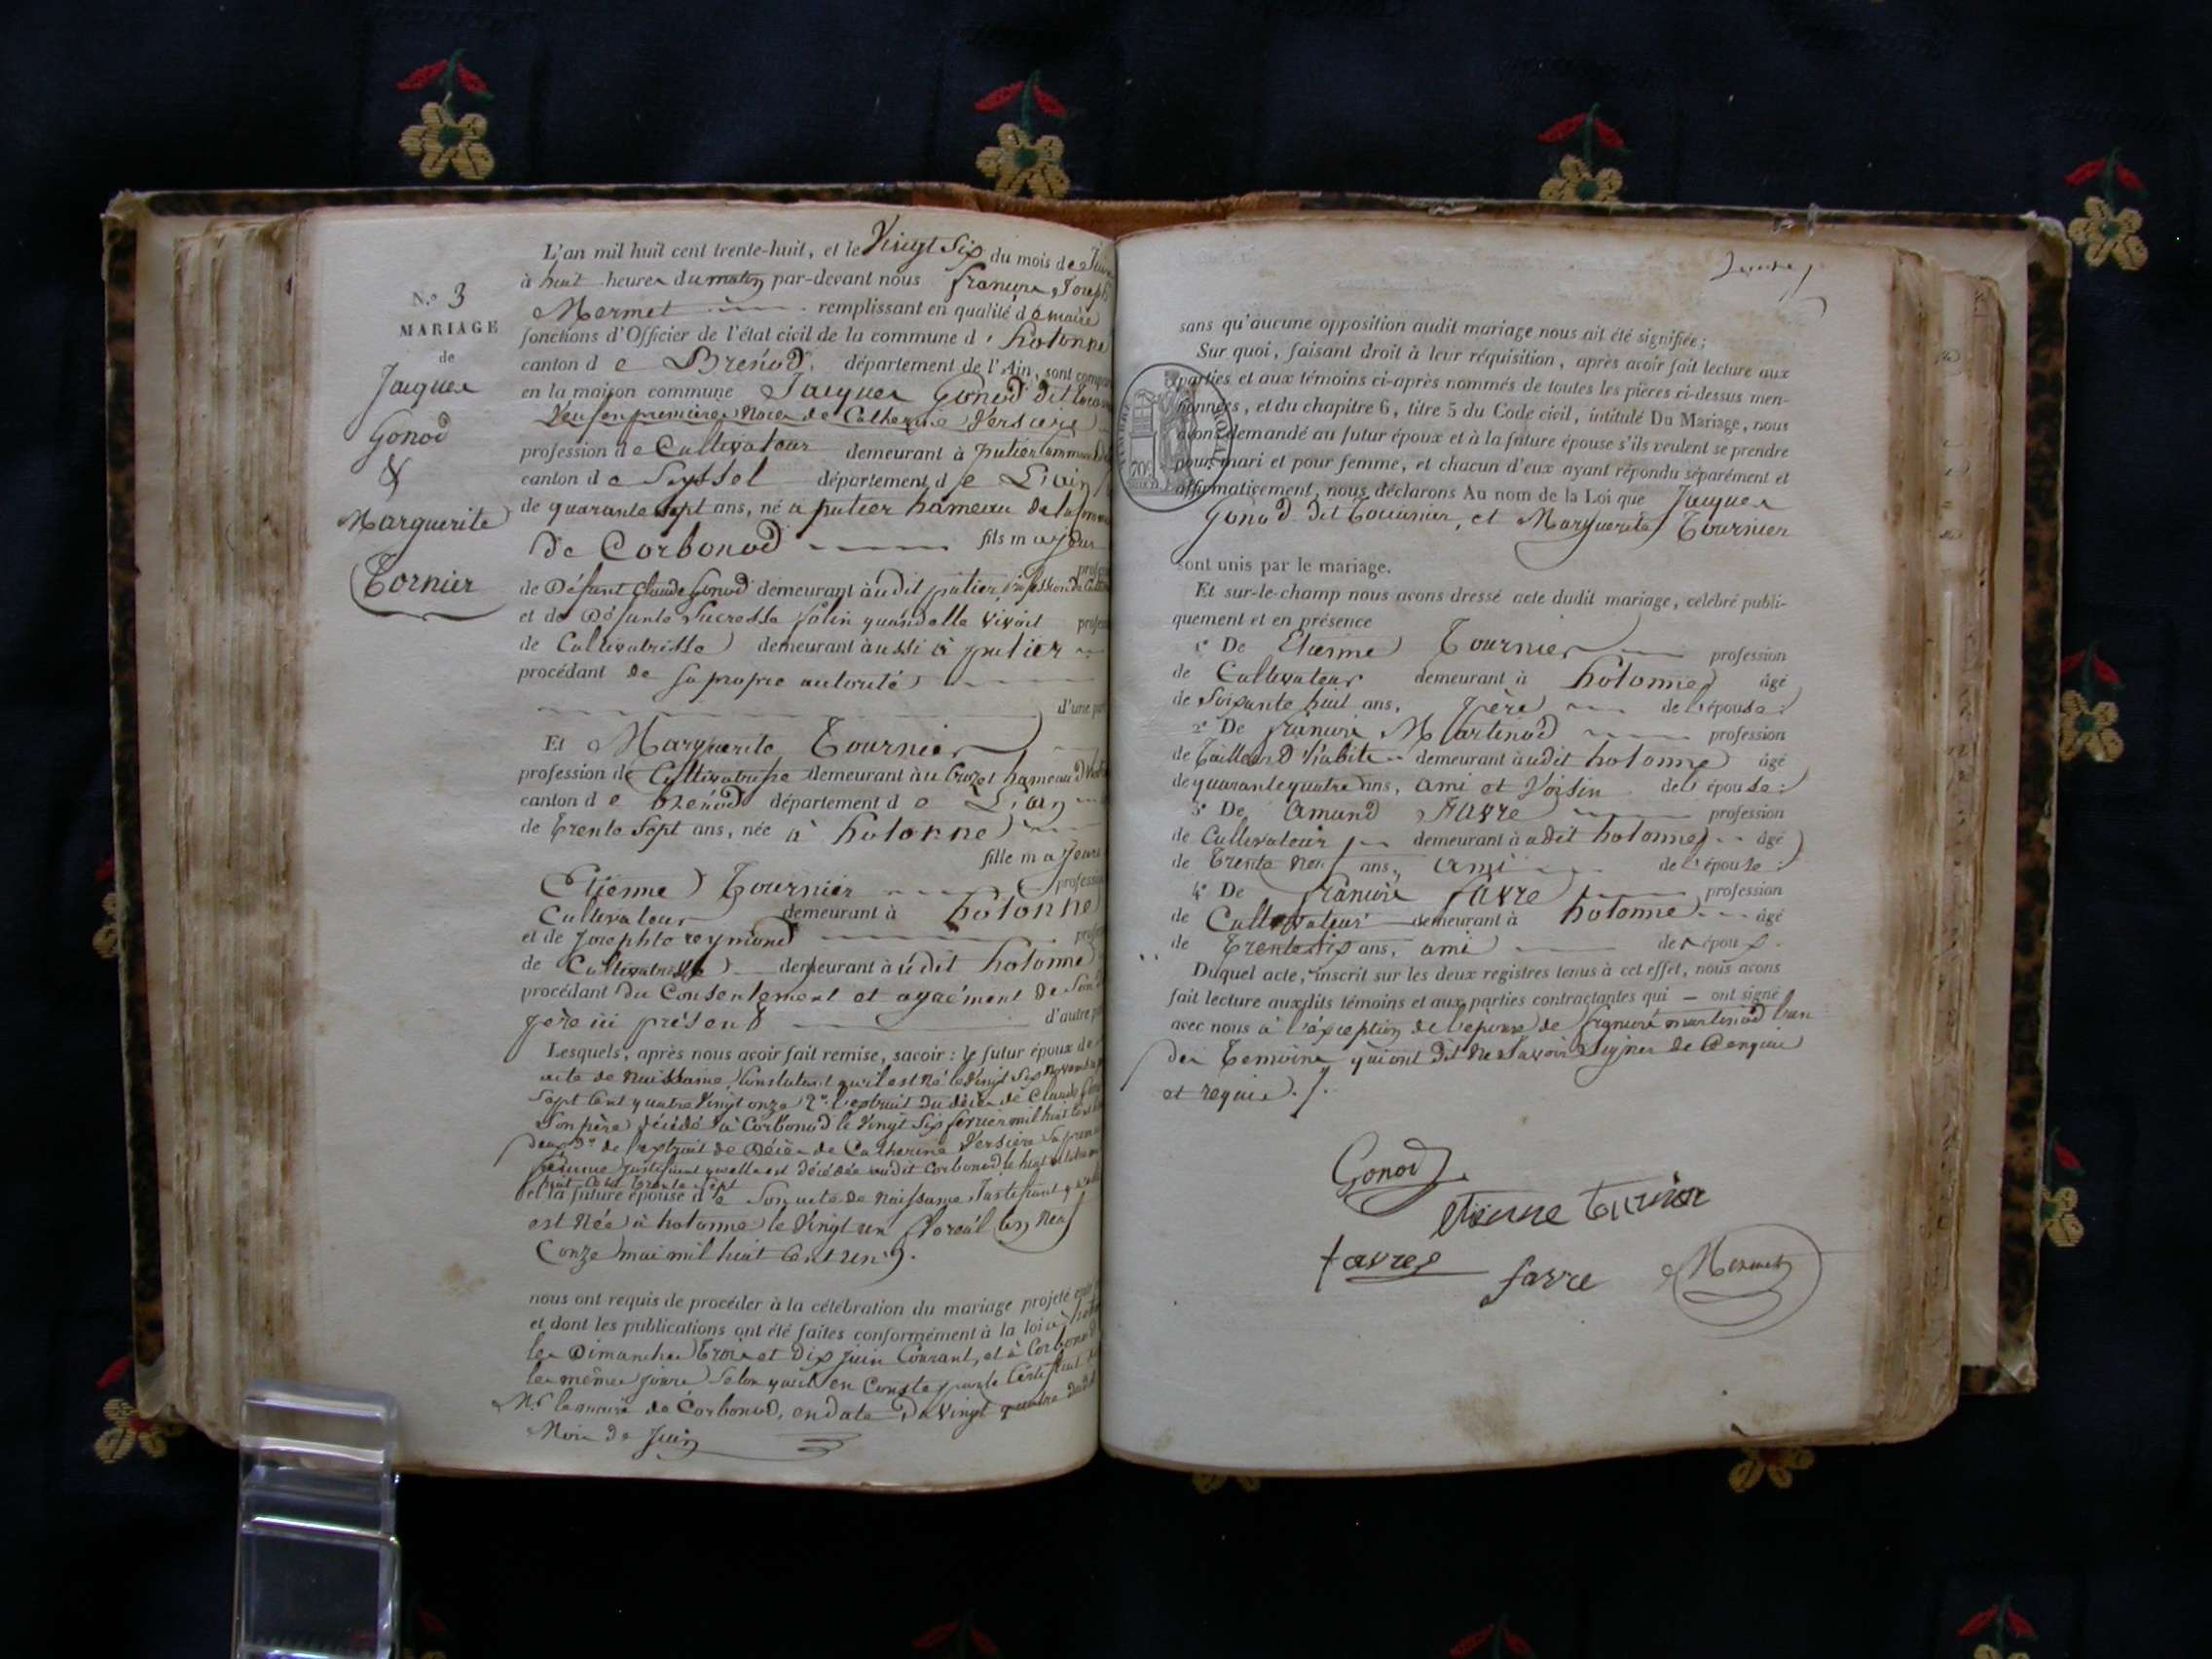 N.º 3
MARIAGE
de
Jacques
Gonod
&
Marguerite
Tornier
L'an mil huit cent trente-huit, et le Vingt Six du mois de Juin
à huit heures du matin par-devant nous françois Joseph
Mermet remplissant en qualité de maire
fonctions d'Officier de l'état civil de la commune d' hotonne
canton de Brenod, département de l'Ain, sont
en la maison commune Jacques Gonod dit
Veuf en premières Noces de Catherine Versière
profession de Cultivateur demeurant à putier
canton de Seyssel département de L'ain
de quarante Sept ans, né à putier hameau de la
de Corbonod fils majeur
de Défunt Claude Gonod demeurant audit putier profession de
et de Défunte Sucresse quand elle vivoit
de Cultivatrisse demeurant aussi à putier
procédant de sa propre autorité
d'une
Et Marguerite Tournier
profession de Cultivatrisse demeurant au Crozet hameau
canton de brénod département de L'ain
de trente Sept ans, née à hotonne
fille majeure
Etienne Tournier
Cultivateur demeurant à hotonne
et de Josephte reymond
de Cultivatrisse demeurant audit hotonne
procédant du Consentement et agrément de Son
père ici présent d'autre
Lesquels, après nous avoir fait remise, savoir : le futur époux de
acte de Naissance, Constatant qu'il est Né le Vingt Six Novembre
Sept Cent quatre Vingt onze 2º l'extrait du décès de Claude
Son père décédé à Corbonod le Vingt Six fevrier mil huit Cent
deux 3º de l'extrait de Décès de Catherine Versière Sa
femme Justifiant qu'elle est décédée audit Corbonod le huit
huit Cent trente Sept
et la future épouse de Son acte de Naissance Justifiant
est Née à hotonne le Vingt un floréal an Neuf
(onze mai mil huit Cent un).
nous ont requis de procéder à la célébration du mariage projeté
et dont les publications ont été faites conformément à la loi à
les Dimanches trois et dix Juin Courant, et à Corbonod
les mêmes jours Selon qu'il en Conste par le Certificat
Mr le maire de Corbonod, en date du Vingt quatre dudit
Mois de Juin
sans qu'aucune opposition audit mariage nous ait été signifiée ;
Sur quoi, faisant droit à leur réquisition, après avoir fait lecture aux
parties et aux témoins ci-après nommés de toutes les pièces ci-dessus men-
tionnées, et du chapitre 6, titre 5 du Code civil, intitulé Du Mariage, nous
avons demandé au futur époux et à la future épouse s'ils veulent se prendre
pour mari et pour femme, et chacun d'eux ayant répondu séparément et
affirmativement, nous déclarons Au nom de la Loi que Jacques
Gonod dit Tournier, et Marguerite Tournier
sont unis par le mariage.
Et sur-le-champ nous avons dressé acte dudit mariage, célébré publi-
quement et en présence
1º De Etienne Tournier profession
de Cultivateur demeurant à hotonne âgé
de Soixante huit ans, père de l'épouse :
2º De françois Martinod profession
de tailleur d'habits demeurant audit hotonne âgé
de quarante quatre ans, ami et Voisin de l'épouse :
3º De Amand Favre profession
de Cultivateur demeurant audit hotonne âgé
de trente Neuf ans, ami de l'épouse :
4º De françois favre profession
de Cultivateur demeurant à hotonne âgé
de trente Six ans, ami de l'époux.
Duquel acte, inscrit sur les deux registres tenus à cet effet, nous avons
fait lecture auxdits témoins et aux parties contractantes qui ont signé
avec nous à l'exception de l'épouse de françois martinod l'un
des temoins qui ont dit ne Savoir Signer de Cenquis
et requis.
Gonod
etienne turnier
favre
favre
Mermet